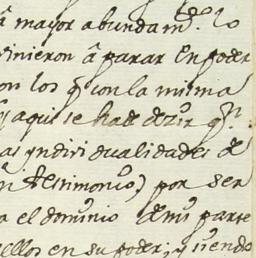 â mayor abundam.to lo
vinieron â parar en poder
on los q con la misma
aqui se ha de dezir q.n
as yndividualidades de
n testimonio) por ser
a el dominio de mi parte
ellos en su poder, y siendo